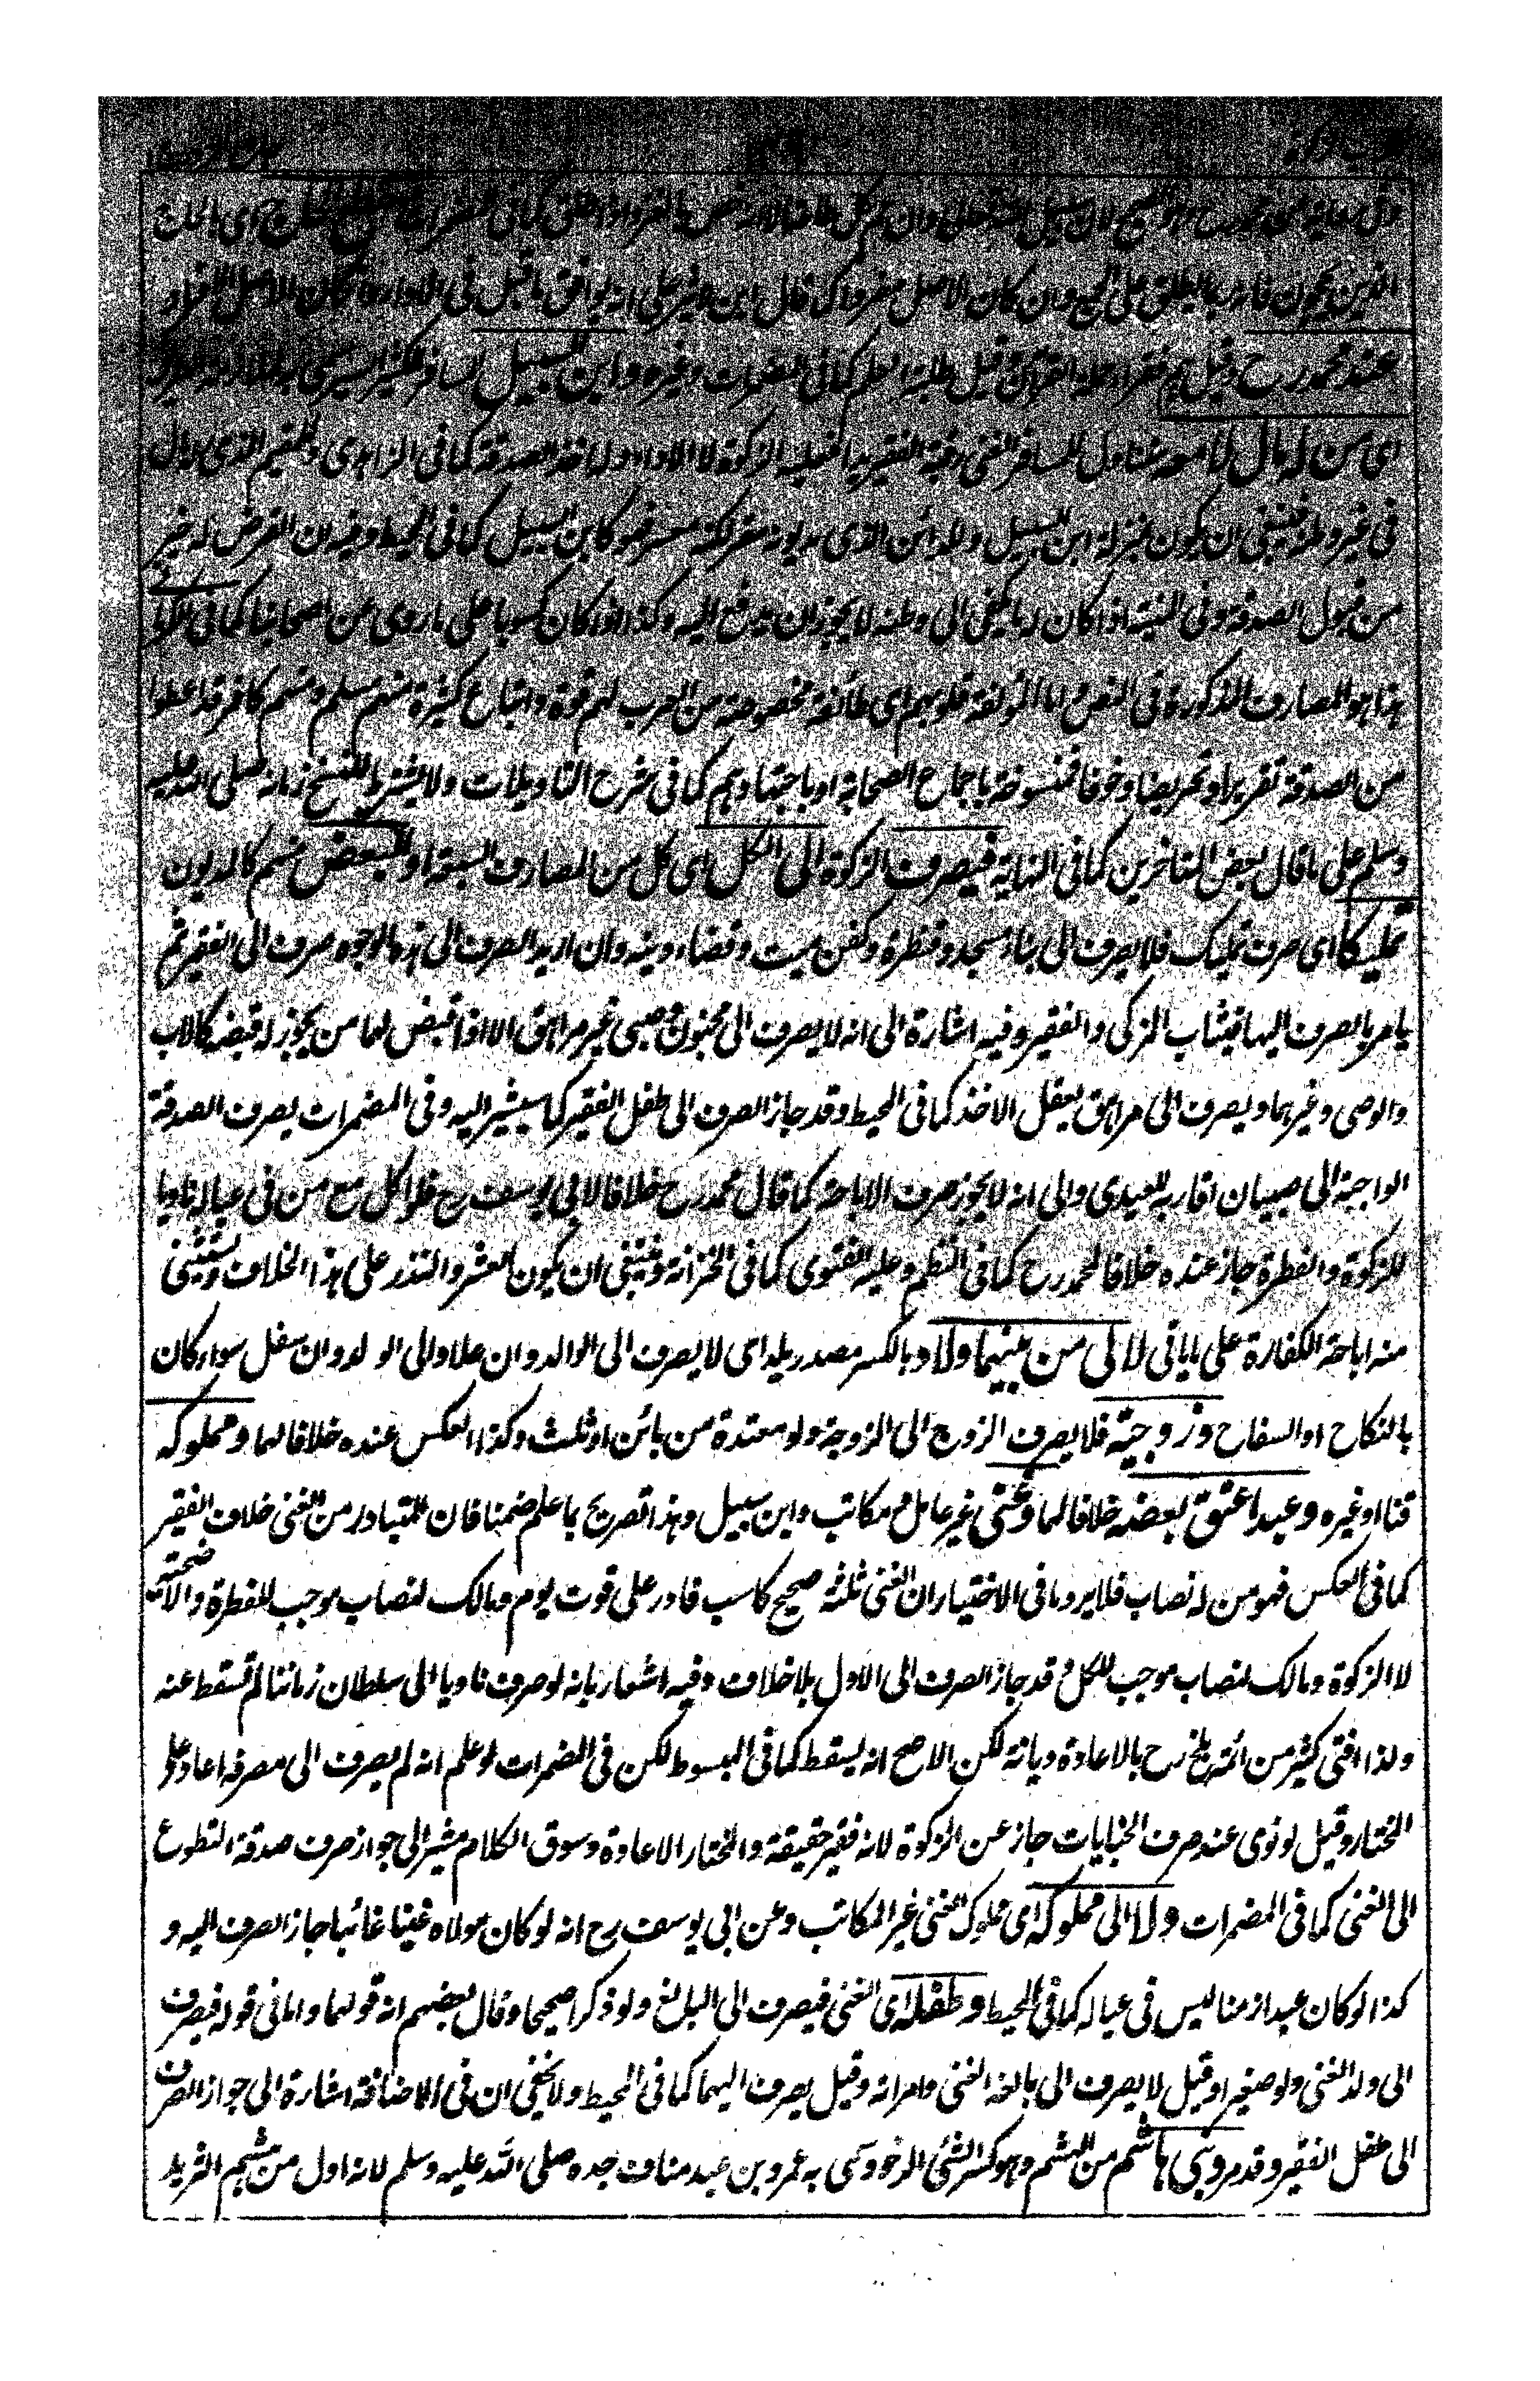 الذين يحجون فانه يطلق على الجمع وان كان الاصل مفردا كما قال ابن الاثير على انه يوافق ما قيل فى
عند محمد رح وقيل هم فقراء وقيل طلبة العلم كما فى المضمرات وغيره وابن السبيل
اى من له مال لا معه كما فى الزاهدى
فى غير وطنه فينبغى ان يكون بمنزلة ابن السبيل والدائن الذى مديونه مقر لكنه معسر فهو كابن السبيل كما فى المحيط وفيه ان القرض له خير
من قبول الصدقة وفى المنية اذا كان له ما يكفى الى وطنه لا يجوز ان يدفع اليه وكذا اذا كان كسوبا على ما روى عن اصحابنا كما فى
هذا هو المصارف المذكورة فى النص اما المؤلفة قلوبهم اى طائفة مخصوصة من العرب لهم قوة واتباع كثيرة منهم مسلم ومنهم كافر قد اعطوا
من الصدقة تقريرا وتحريضا وخوفا فمنسوخة باجماع الصحابة او باجتهادهم كما فى شرح التاويلات ولا يشترط للنسخ زمانه صلى الله عليه
وسلم على ما قال بعض المتاخرين كما فى النهاية فيصرف الزكوة الى الكل اى كل من المصارف السبعة او البعض منهم كالمديون
تمليكا اى صرف تمليك فلا يصرف الى بناء مسجد وقنطرة وكفن ميت وقضاء دينه وان اريد الصرف الى هذه الوجوه صرف الى الفقير ثم
يامر بالصرف اليها فيثاب المزكى والفقير وفيه اشارة الى انه لا يصرف الى مجنون وصبى غير مراهق الا اذا قبض لهما من يجوز له قبضه كالاب
والوصى وغيرهما ويصرف الى مراهق يعقل الاخذ كما فى المحيط وقد جاز الصرف الى طفل الفقير كما سيشير اليه وفى المضمرات يصرف الصدقة
الواجبة الى صبيان اقاربه للعيدى والى انه لا يجوز صرف الاباحة كما قال محمد رح خلافا لابى يوسف رح فلو اكل مع من فى عياله ناويا
للزكوة والفطرة جاز عنده خلافا لمحمد رح كما فى النظم وعليه الفتوى كما فى الخزانة وينبغى ان يكون العشر والنذر على هذا الخلاف ويستثنى
منه اباحة الكفارة على ما ياتى لا الى من بينهما ولاد بالكسر مصدر يلد اى لا يصرف الى الوالد وان علا والى الولد وان سفل سواء كان
بالنكاح او السفاح وزوجية فلا يصرف الزوج الى الزوجة ولو معتدة من بائن او ثلث وكذا العكس عنده خلافا لهما ومملوكه
قنا او غيره وعبد اعتق بعضه خلافا لهما وغنى غير عامل ومكاتب وابن سبيل وهذا تصريح بما علم ضمنا فان المتبادر من الغنى خلاف الفقير
كما فى العكس فهو من له نصاب فلا يرد ما فى الاختيار ان الغنى ثلثة صحيح كاسب قادر على قوت يوم ومالك لنصاب موجب للفطرة والاضحية
لا الزكوة ومالك لنصاب موجب للكل وقد جاز الصرف الى الاول بلا خلاف وفيه اشعار بانه لو صرف ناويا الى سلطان زماننا لم تسقط عنه
ولذا افتى كثير من ائمة بلخ رح بالاعادة ديانة لكن الاصح انه يسقط كما فى المبسوط لكن فى المضمرات لو علم انه لم يصرف الى مصرفه اعاد على
المختار وقيل لو نوى عند صرف الجبايات جاز عن الزكوة لانه فقير حقيقة والمختار الاعادة وسوق الكلام مشير الى جواز صرف صدقة التطوع
الى الغنى كما فى المضمرات ولا الى مملوكه اى مملوك الغنى غير المكاتب وعن ابى يوسف رح انه لو كان مولاه غنيا غائبا جاز الصرف اليه و
كذا لو كان عبدا زمنا ليس فى عياله كما فى المحيط وطفله اى الغنى فيصرف الى البالغ ولو ذكرا صحيحا وقال بعضهم انه قولهما واما فى قوله فيصرف
الى ولد الغنى ولو صغيرا وقيل لا يصرف الى بالغة الغنى وامرأته وقيل يصرف اليهما كما فى المحيط ولا يخفى ان فى الاضافة اشارة الى جواز الصرف
الى طفل الفقير وقد مر وبنى هاشم من الهشم وهو كسر الشئ الرخو وسمى به عمرو بن عبد مناف جده صلى الله عليه وسلم لانه اول من هشم الثريد